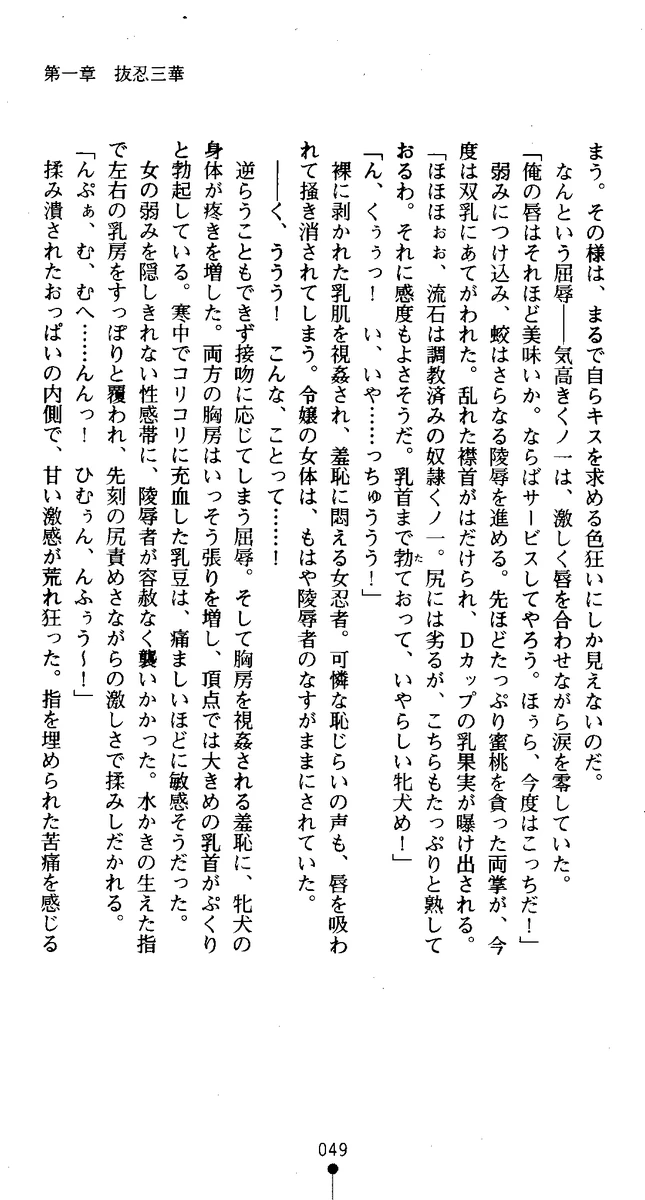 第一章　抜忍三華
まう。その様は、まるで自らキスを求める色狂いにしか見えないのだ。
　なんという屈辱――気高きくノ一は、激しく唇を合わせながら涙を零していた。
「俺の唇はそれほど美味いか。ならばサービスしてやろう。ほぅら、今度はこっちだ！」
　弱みにつけ込み、蛟はさらなる陵辱を進める。先ほどたっぷり蜜桃を貪った両掌が、今
度は双乳にあてがわれた。乱れた襟首がはだけられ、Ｄカップの乳果実が曝け出される。
「ほほほぉぉ、流石は調教済みの奴隷くノ一。尻には劣るが、こちらもたっぷりと熟して
おるわ。それに感度もよさそうだ。乳首まで勃ておって、いやらしい牝犬め！」
「ん、くぅぅっ！　い、いや……っちゅううう！」
　裸に剥かれた乳肌を視姦され、羞恥に悶える女忍者。可憐な恥じらいの声も、唇を吸わ
れて掻き消されてしまう。令嬢の女体は、もはや陵辱者のなすがままにされていた。
　――く、ううう！　こんな、ことって……！
　逆らうこともできず接吻に応じてしまう屈辱。そして胸房を視姦される羞恥に、牝犬の
身体が疼きを増した。両方の胸房はいっそう張りを増し、頂点では大きめの乳首がぷくり
と勃起している。寒中でコリコリに充血した乳豆は、痛ましいほどに敏感そうだった。
　女の弱みを隠しきれない性感帯に、陵辱者が容赦なく襲いかかった。水かきの生えた指
で左右の乳房をすっぽりと覆われ、先刻の尻責めさながらの激しさで揉みしだかれる。
「んぷぁ、む、むへ……んんっ！　ひむぅん、んふぅう～！」
　揉み潰されたおっぱいの内側で、甘い激感が荒れ狂った。指を埋められた苦痛を感じる
049